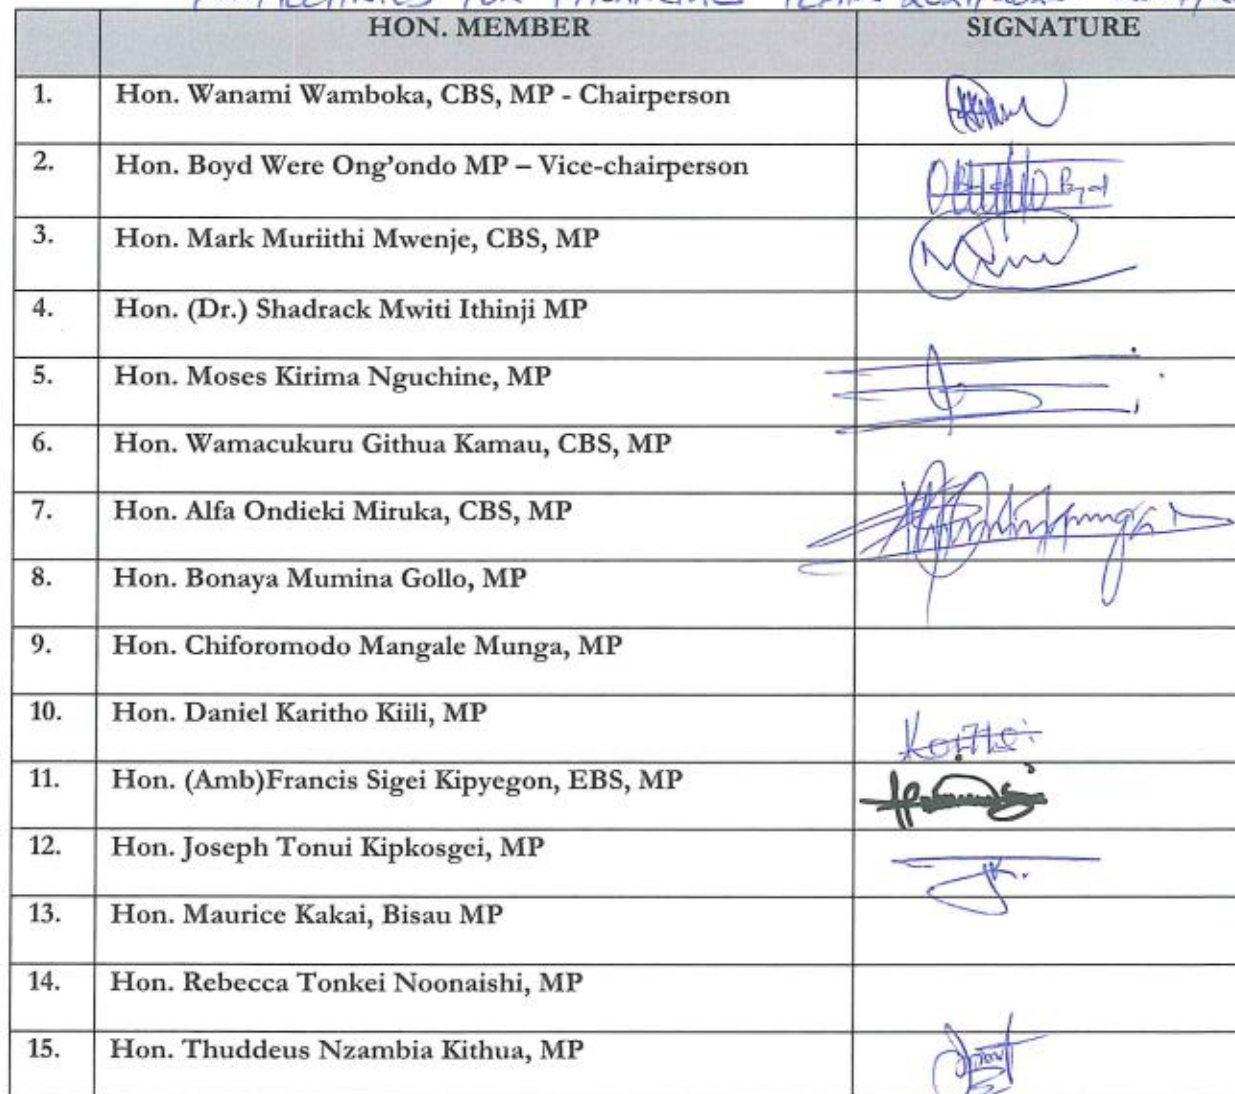 FOR FINANCIAL
HON. MEMBER SIGNATURE
1. Hon. Wanami Wamboka, CBS, MP - Chairperson
2. Hon. Boyd Were Ong'ondo MP – Vice-chairperson
3. Hon. Mark Muriithi Mwenje, CBS, MP
4. Hon. (Dr.) Shadrack Mwiti Ithinji MP
5. Hon. Moses Kirima Nguchine, MP
6. Hon. Wamacukuru Githua Kamau, CBS, MP
7. Hon. Alfa Ondieki Miruka, CBS, MP
8. Hon. Bonaya Mumina Gollo, MP
9. Hon. Chiforomodo Mangale Munga, MP
10. Hon. Daniel Karitho Kiili, MP
11. Hon. (Amb)Francis Sigei Kipyegon, EBS, MP
12. Hon. Joseph Tonui Kipkosgei, MP
13. Hon. Maurice Kakai, Bisau MP
14. Hon. Rebecca Tonkei Noonaishi, MP
15. Hon. Thuddeus Nzambia Kithua, MP